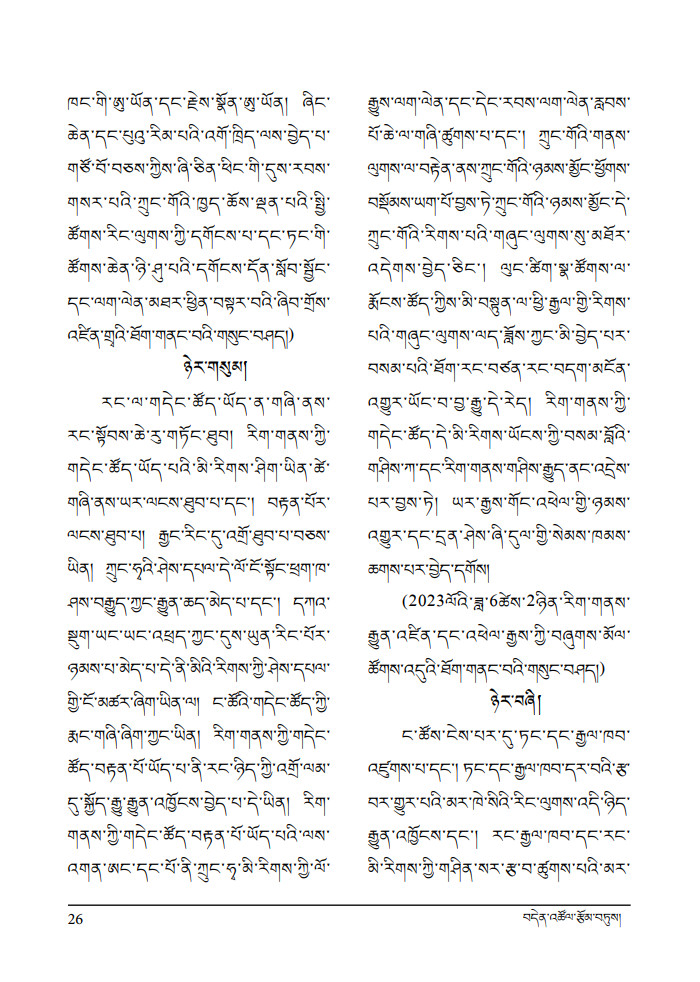 ཁང་གི་ཨུ་ཡོན་དང་རྗེས་སྣོན་ཨུ་ཡོན། ཞིང་
ཆེན་དང་པུའུ་རིམ་པའི་འགོ་ཁྲིད་ལས་བྱེད་པ་
གཙོ་བོ་བཅས་ཀྱིས་ཞི་ཅིན་ཕིང་གི་དུས་རབས་
གསར་པའི་ཀྲུང་གོའི་ཁྱད་ཆོས་ལྡན་པའི་སྤྱི་
ཚོགས་རིང་ལུགས་ཀྱི་དགོངས་པ་དང་ཏང་གི་
ཚོགས་ཆེན་ཉི་ཤུ་པའི་དགོངས་དོན་སློབ་སྦྱོང་
དང་ལག་ལེན་མཐར་ཕྱིན་བསྟར་བའི་ཞིབ་གྲོས་
འཛིན་གྲྭའི་ཐོག་གནང་བའི་གསུང་བཤད།)
ཉེར་གསུམ།
རང་ལ་གདེང་ཚོད་ཡོད་ན་གཞི་ནས་
རང་སྟོབས་ཆེ་རུ་གཏོང་ཐུབ། རིག་གནས་ཀྱི་
གདེང་ཚོད་ཡོད་པའི་མི་རིགས་ཤིག་ཡིན་ཚེ་
གཞི་ནས་ཡར་ལངས་ཐུབ་པ་དང་། བརྟན་པོར་
ལངས་ཐུབ་པ། རྒྱང་རིང་དུ་འགྲོ་ཐུབ་པ་བཅས་
ཡིན། ཀྲུང་ཧྭའི་ཤེས་དཔལ་དེ་ལོ་ངོ་སྟོང་ཕྲག་ཁ་
ཤས་བརྒྱུད་ཀྱང་རྒྱུན་ཆད་མེད་པ་དང་། དཀའ་
སྡུག་ཡང་ཡང་འཕྲད་ཀྱང་དུས་ཡུན་རིང་པོར་
ཉམས་པ་མེད་པ་དེ་ནི་མིའི་རིགས་ཀྱི་ཤེས་དཔལ་
གྱི་ངོ་མཚར་ཞིག་ཡིན་ལ། ང་ཚོའི་གདེང་ཚོད་ཀྱི་
རྨང་གཞི་ཞིག་ཀྱང་ཡིན། རིག་གནས་ཀྱི་གདེང་
ཚོད་བརྟན་པོ་ཡོད་པ་ནི་རང་ཉིད་ཀྱི་འགྲོ་ལམ་
དུ་སྐྱོད་རྒྱུ་རྒྱུན་འཁྱོངས་བྱེད་པ་དེ་ཡིན། རིག་
གནས་ཀྱི་གདེང་ཚོད་བརྟན་པོ་ཡོད་པའི་ལས་
འགན་ཨང་དང་པོ་ནི་ཀྲུང་ཧྭ་མི་རིགས་ཀྱི་ལོ་
རྒྱུས་ལག་ལེན་དང་དེང་རབས་ལག་ལེན་རླབས་
པོ་ཆེ་ལ་གཞི་ཚུགས་པ་དང་། ཀྲུང་གོའི་གནས་
ལུགས་ལ་བརྟེན་ནས་ཀྲུང་གོའི་ཉམས་མྱོང་ཕྱོགས་
བསྡོམས་ཡག་པོ་བྱས་ཏེ་ཀྲུང་གོའི་ཉམས་མྱོང་དེ་
ཀྲུང་གོའི་རིགས་པའི་གཞུང་ལུགས་སུ་མཐོར་
འདེགས་བྱེད་ཅིང་། ལུང་ཚིག་སྣ་ཚོགས་ལ་
རྨོངས་ཚོད་ཀྱིས་མི་བསྟུན་ལ་ཕྱི་རྒྱལ་གྱི་རིགས་
པའི་གཞུང་ལུགས་ལད་ཟློས་ཀྱང་མི་བྱེད་པར་
བསམ་པའི་ཐོག་རང་བཙན་རང་བདག་མངོན་
འགྱུར་ཡོང་བ་བྱ་རྒྱུ་དེ་རེད། རིག་གནས་ཀྱི་
གདེང་ཚོད་དེ་མི་རིགས་ཡོངས་ཀྱི་བསམ་བློའི་
གཤིས་ཀ་དང་རིག་གནས་གཤིས་རྒྱུད་ནང་འདྲེས་
པར་བྱས་ཏེ། ཡར་རྒྱས་གོང་འཕེལ་གྱི་ཉམས་
འགྱུར་དང་དྲན་ཤེས་ཞི་དུལ་གྱི་སེམས་ཁམས་
ཆགས་པར་བྱེད་དགོས།
(2023ལོའི་ཟླ་6ཚེས་2ཉིན་རིག་གནས་
རྒྱུན་འཛིན་དང་འཕེལ་རྒྱས་ཀྱི་བཞུགས་མོལ་
ཚོགས་འདུའི་ཐོག་གནང་བའི་གསུང་བཤད།)
ཉེར་བཞི།
ང་ཚོས་ངེས་པར་དུ་ཏང་དང་རྒྱལ་ཁབ་
འཛུགས་པ་དང་། ཏང་དང་རྒྱལ་ཁབ་དར་བའི་རྩ་
བར་གྱུར་པའི་མར་ཁེ་སིའི་རིང་ལུགས་འདི་ཉིད་
རྒྱུན་འཁྱོངས་དང་། རང་རྒྱལ་ཁབ་དང་རང་
མི་རིགས་ཀྱི་གཤིན་སར་རྩ་བ་ཚུགས་པའི་མར་
26
བདེན་འཚོལ་རྩོམ་བཏུས།